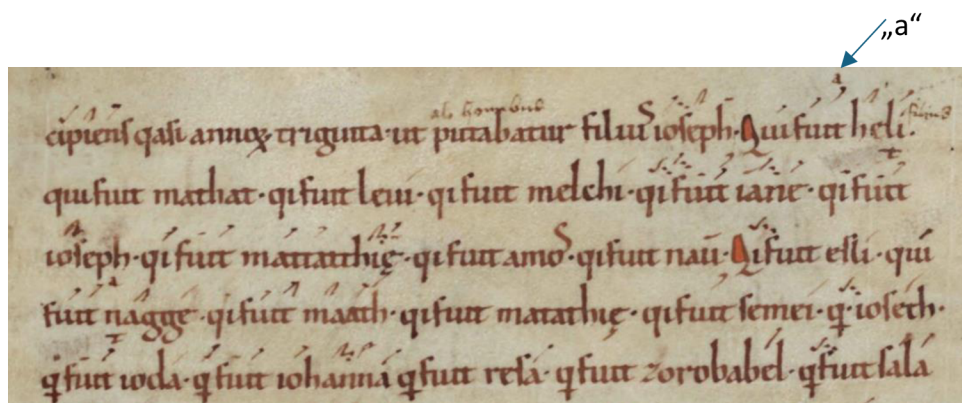 „a“
a
ab hominibus filius
cipiens qasi annoꝝ triginta · ut putabatur filius ioseph · Qui fuit heli ·
qui fuit mathat · qi fuit leui · qi fuit melchi · qi fuit ianne · qi fuit
ioseph · qi fuit mattatthię · qi fuit amos · qi fuit naū · Qi fuit esli · qui
fuit nagge · qi fuit maath · qi fuit matathię · qi fuit semei · q · ioseth ·
q fuit ioda · q fuit iohanna q fuit resa · q fuit zorobabel · q fuit sala